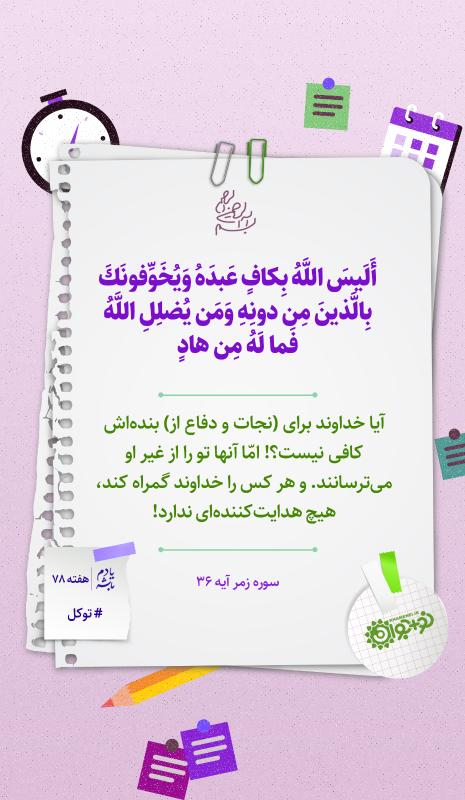 بسم الله الرحمن الرحیم
أَلَيسَ اللَّهُ بِكافٍ عَبدَهُ وَيُخَوِّفونَكَ
بِالَّذينَ مِن دونِهِ وَمَن يُضلِلِ اللَّهُ
فَما لَهُ مِن هادٍ
آیا خداوند برای (نجات و دفاع از) بنده‌اش
کافی نیست؟! امّا آنها تو را از غیر او
می‌ترسانند. و هر کس را خداوند گمراه کند،
هیچ هدایت‌کننده‌ای ندارد!
سوره زمر آیه ۳۶
یادم باشه
هفته ۷۸
#توکل
KHAMENEI.IR
نوجوان